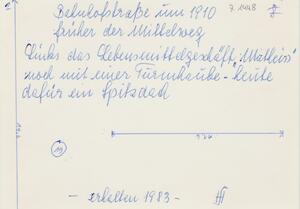 Bahnhofstraße um 1910
7.1448
früher der Mittelweg
Links das Lebensmittelgeschäft "Mathein"
noch mit einer Turmhaube - heute
dafür ein Spitzdach
19
- erhalten 1983 -